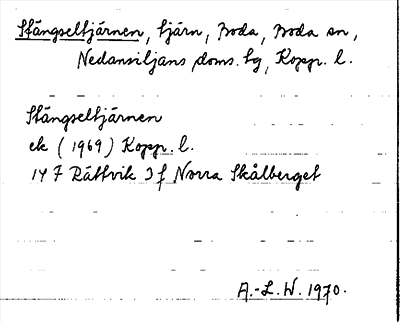 Stängseltjärnen, tjärn, Boda, Boda sn,
Nedansiljans doms. tg, Koppr. l.
Stängseltjärnen
ek (1969) Koppr. l.
14 F Rättvik 3 f Norra Skålberget
A.-L. W. 1970.